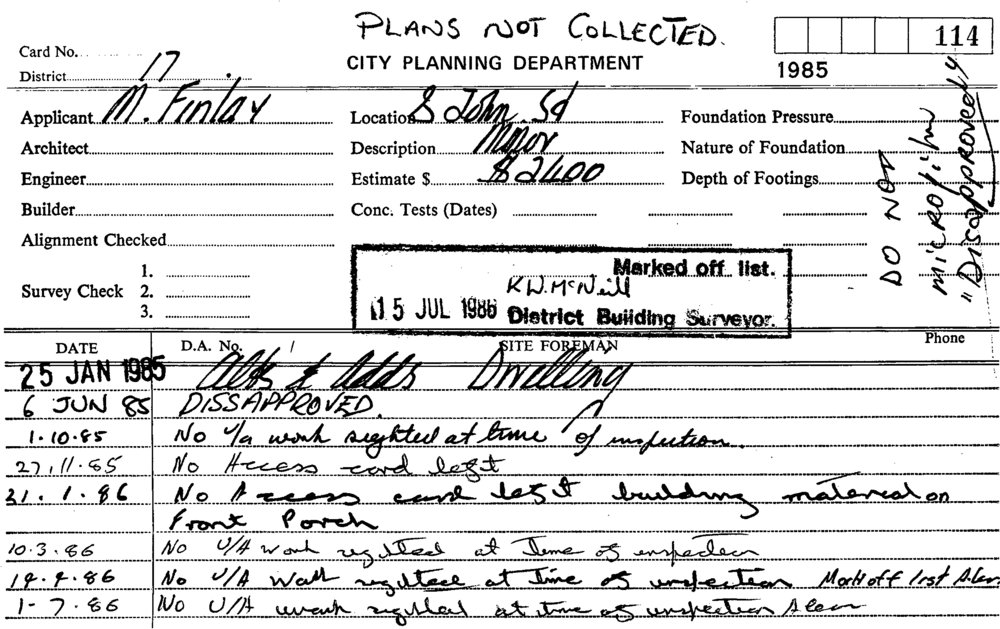 PLANS NOT COLLECTED.
114
Card No.
CITY PLANNING DEPARTMENT
1985
District 17
Applicant M. Finlay
Location 8 John Sd
Foundation Pressure
Architect
Description Minor
Nature of Foundation
Engineer
Estimate $ $2400
Depth of Footings
Builder
Conc. Tests (Dates)
Alignment Checked
DO NOT
microfilm
"Disapproved"
Survey Check
1.
2.
3.
Marked off list.
K.W. McNeill
15 JUL 1986 District Building Surveyor.
DATE D.A. No. / SITE FOREMAN Phone
25 JAN 1985 Alts & Adds Dwelling
6 JUN 85 DISSAPPROVED.
1.10.85 No U/a work sighted at time of inspection.
27.11.85 No Access card left
31.1.86 No Access card left building material on
Front Porch
10.3.86 No U/A work sighted at time of inspection
14.4.86 No U/A Work sighted at time of inspection Mark off list
1-7.86 No U/A work sighted at time of inspection